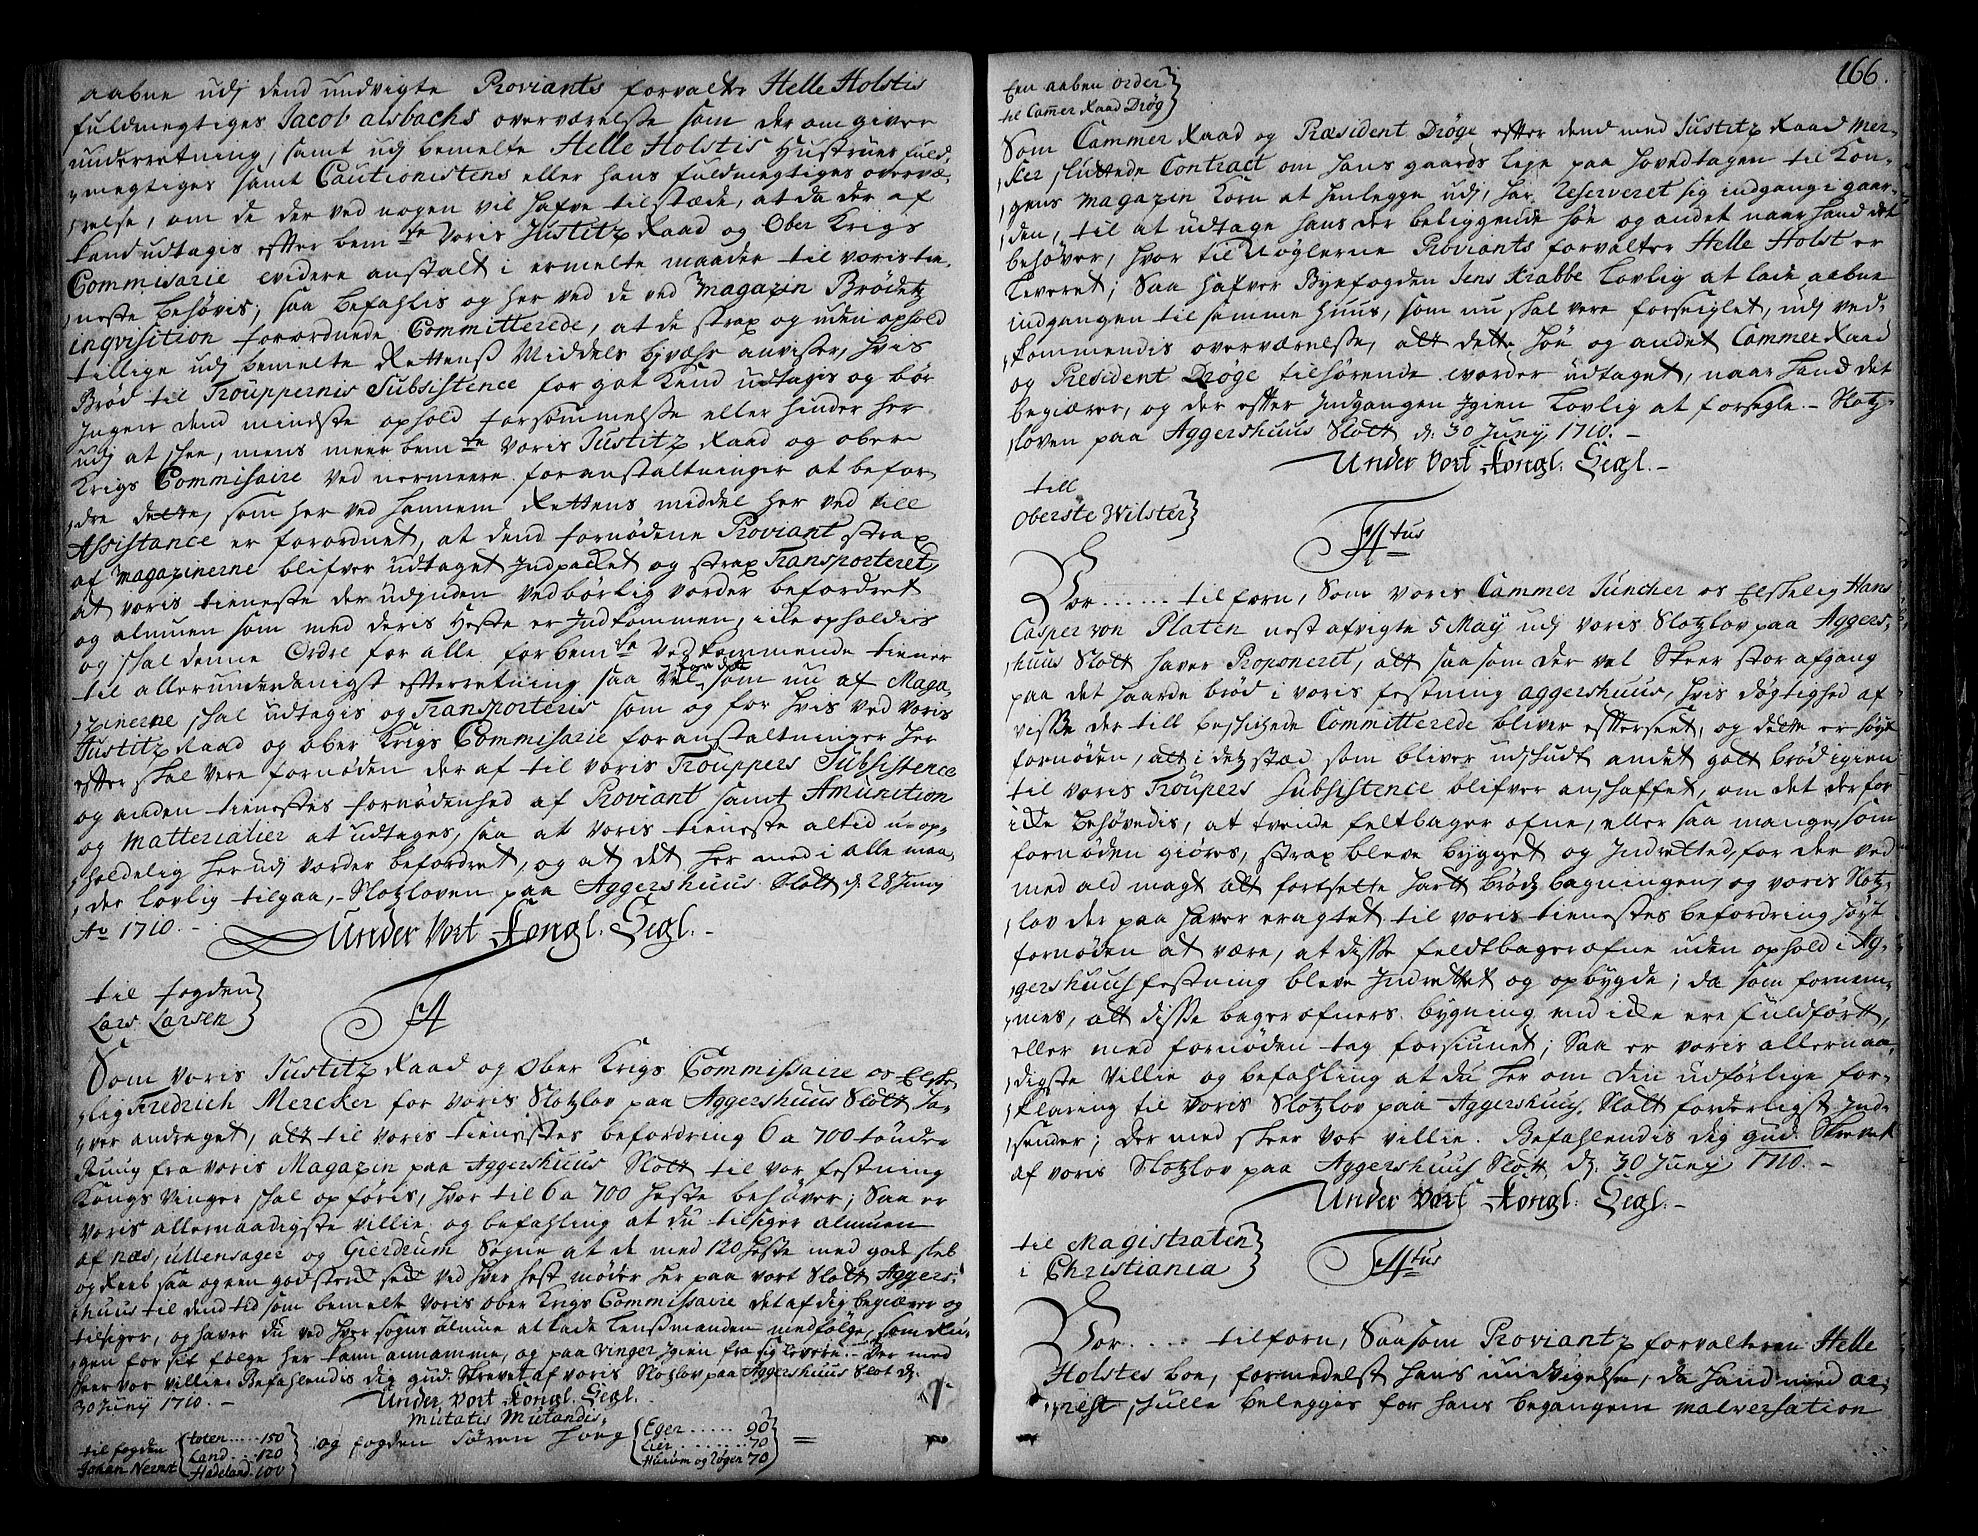 aabne udj dend undvigte Proviants forvalter Helle Holstis
fuldmegtiges Jacob alsbachs overværelsse som der om giver
underretning, samt udj bemelte Helle Holstis Hustrues fuld,
,megtiges samt Cautionistens eller hans fuldmegtiges overvæ,
,relse, om de der ved nogen vil hafve tilstæde, at da der af
kand udtagis efter bem.te Voris Justitz Raad og Ober Krigs
Commisarie videre anstalt i ermelte maader til voris tie,
,neste behøvis; saa befahlis og her ved de ved Magazin Brødetz
inqvisition forordnede Committerede, at de strax og uden ophold
tillige udj bemelte Rettens Middels bivæhr anvisser, hvis
Brød til Trouppernis Subsistence for got kand udtagis og bør
Ingen dend mindste ophold forsømmelsse eller hinder her
udj at skee, mens meer bem.te Voris Justitz Raad og ober
Krigs Commisaire ved nermere foranstaltninger at befor,
,dre dette, som her ved hannem Rettens middel her ved till
Assistance er forordnet, at dend fornødene Proviant strax
af magazinerne blifver udtaget Indpacket og strax Transporteret,
at voris tieneste der udjnden ved børlig vorder befordret
og almuen som med deris Heste er Indkommen, icke opholdis
og skal denne Ordre for alle forbem.te Vedkommende tiener
til allerunderdanigst efterretning saa vel som nu af Maga,
,zinerne skal udtagis og Transporteris som og for hvis ved voris
Justitz Raad og ober Krigs Commisarie foranstaltninger her
efter skal vere fornøden der af til voris Trouppers Subsistence
og anden tienestes fornødenhed af Proviant samt Amunition
og Mattercalier at udtages, saa at voris tieneste altid u-op,
,holdelig her udj vorder befordret, og at det her med i alle maa,
,der lovlig tilgaa, Slotzloven paa Aggershuus Slott d. 28 Juny
A° 1710. -
Under Vort Kongl. Segl. -
til fogden
Lars Larsen
F4
Som voris Justitz Raad og Ober Krigs Commissaire os Elske,
,lig Fredrich Mercker for voris Slotzlov paa Aggershuus Slott ha,
,ver andraget, att til voris tienestes befordring 6 a 700 tønder
Rug fra voris Magazin paa Aggershuus Slott til vor festning
Kongs Vinger skal opføris, hvor til 6 a 700 heste behøves; Saa er
voris allernaadigste villie og befahling at du tilsiger almuen
af næs, ullensager og Gierdrum Sogne at de med 120 heste med gode
og Reeb saa og ved hver hest møder her paa vort Slott Aggers,
,huus til dend tid som bemelt voris ober Krigs Commissaire det af dig begiærer og
tilsiger, og haver du ved hver sogns almue at lade Lensmanden medfølge, som Ru,
,gen for sit følge her kand annamme, og paa Vinger igien fra sig levere. - Der med
skeer vor villie. Befahlendis dig gud. Skrevet af voris Slotzlov paa Aggershuus Slot d.
30 Juny 1710. -
Under Vort Kongl. Segl.
Mutatis Mutandis,
til fogden Johan Nernst
toten ..... 150
Land ... 120
Hadeland. 100
og fogden Søren
Eger ...... 90
Lier ........ 70
Hurum og Røgen 70
166.
Een aaben order
til Camer Raad Drøg
Som Cammer Raad og Præsident Drøge efter dend med Justitz Raad Mer,
,cker sluttede Contract om hans gaards leje paa hovedtagen til Kon,
,gens Magazin Korn at henlegge udj, har reserveret sig indgang i gaar,
,den, til at udtage hans der beliggende høe og andet naar hand det
behøver, hvor til Nøglerne Proviants forvalter Helle Holst er
leveret; Saa hafver Byefogden Jens Krabbe lovlig at lade aabne
indgangen til samme huus, som nu skal vere forseiglet, udj ved,
,kommendis overværelse, att dette høe og andet Cammer Raad
og President Drøge tilhørende vorder udtaget, naar hand det
begiærer, og der efter Indgangen Igien lovlig at forsegle. - Slotz,
,loven paa Aggershuus Slott d. 30 Juny 1710. -
Under Vort Kongl. Segl. -
till
Oberste Wilster
F4tus
Vor ...... tilforn, Som voris Cammer Juncher os Elskelig Hans
Casper von Platen nest afvigte 5 May udj voris Slotzlov paa Aggers,
,huus Slott haver Proponeret, att saasom der vel skeer stor afgang
paa det haarde brød i voris festning aggershuus, hvis døgtighed af
visse der till beskickede Committerede bliver efterseet, og dette er høyt
fornøden, att i detz stæd som bliver udskudt andet gott brød igien
til voris Troupers Subsistence blifver anskaffet, om det derfor
icke behøvedis, at tvende feltbager ofne, eller saa mange, som
fornøden giøres, strax bleve bygget og Indrettet, for der ved
med ald magt att fortsette hartt brødz bagningen, og voris Slotz,
,lov der paa haver eragtet til voris tienestes befordring høyt
fornøden at være, at disse feldtbager ofne uden ophold i Ag,
,gershuus festning bleve Indrettet og opbygde; da som fornem,
,mes, att disse bager ofners bygning end icke ere fuldført,
eller med fornøden tag forsiunet; Saa er voris allernaa,
,digste Villie og befahling at du her om din udførlige for,
,klaring til voris Slotzlov paa Aggershuus Slott forderligst Ind,
,sender; der med skeer vor villie. Befahlendis dig gud. Skrevet
af voris Slotzlov paa Aggershuus Slott, d. 30 Juny 1710. -
Under Vort Kongl. Segl. -
til Magistraten
i Christiania
F4tus
Vor .... tilforn, Saasom Proviantz forvalteren Helle
Holstes boe, formedelst hans undvigelse, da hand med ar,
,rest skulle belegges for hans begangene malversation